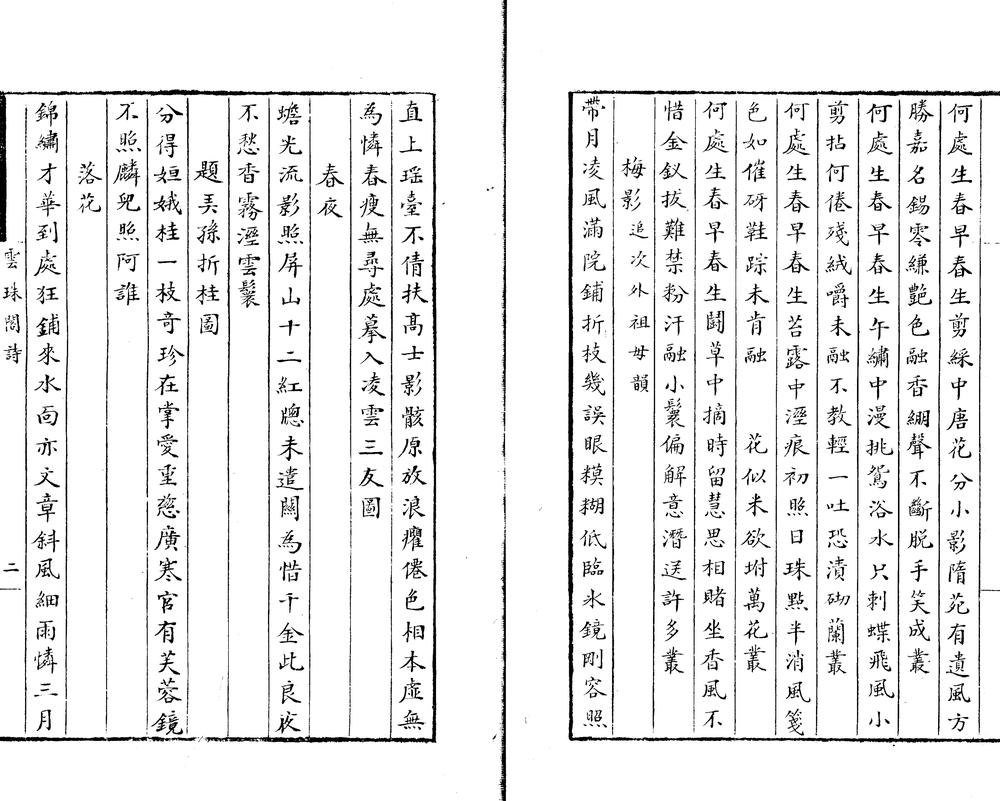 何處生春早春生剪綵中唐花分小影隋苑有遺風方
勝嘉名錫零縑艷色融香綳聲不斷脱手笑成叢
何處生春早春生午繡中漫挑鴛浴水只刺蝶飛風小
剪拈何倦殘絨嚼未融不教輕一吐恐漬砌蘭叢
何處生春早春生苔露中溼痕初照日珠點半消風箋
色如催砑鞋踪未肯融　花似米欲坿萬花叢
何處生春早春生鬭草中摘時留慧思相賭坐香風不
惜金釵拔難禁粉汗融小鬟偏解意潛送許多叢
梅影追次外祖母韻
帶月凌風滿院鋪折枝幾誤眼糢糊低臨氷鏡剛容照
直上瑶臺不倩扶髙士影骸原放浪癯僊色相本虛無
為憐春瘦無尋處摹入凌雲三友圖
春夜
蟾光流影照屏山十二紅牕未遣關為惜千金此良夜
不愁香霧溼雲鬟
題弄孫折桂圖
分得姮娥桂一枝奇珍在掌愛重慈廣寒宫有芙蓉鏡
不照麟兒照阿誰
落花
錦繡才華到處狂鋪來水面亦文章斜風細雨憐三月
雲珠閣詩
二